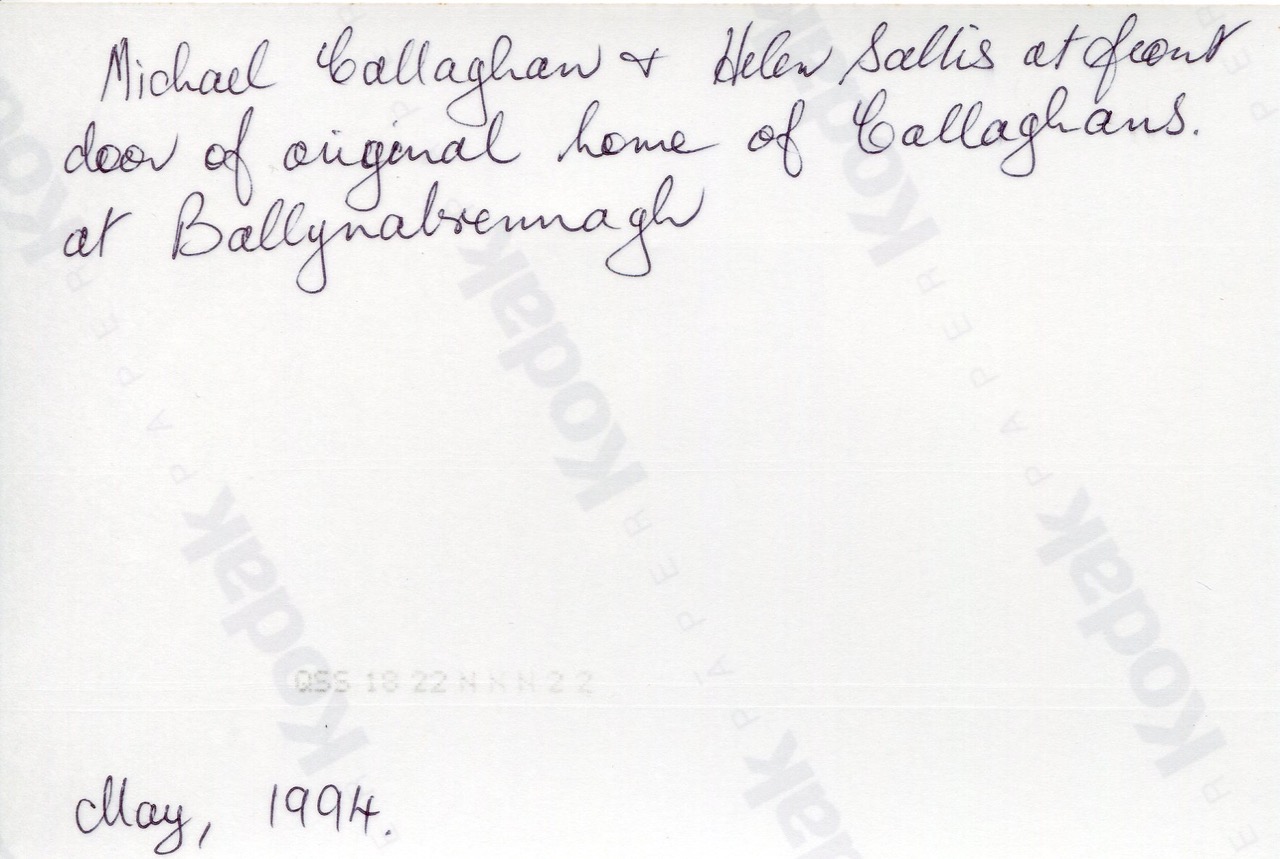 Michael Callaghan + Helen Sallis at front
door of original home of Callaghans.
at Ballynabrennagh
Kodak
PAPER
Kodak
PAPER
Kodak
PAPER
Kodak
Kodak
QSS 18 22 N N N 2 2
Kodak
May, 1994.